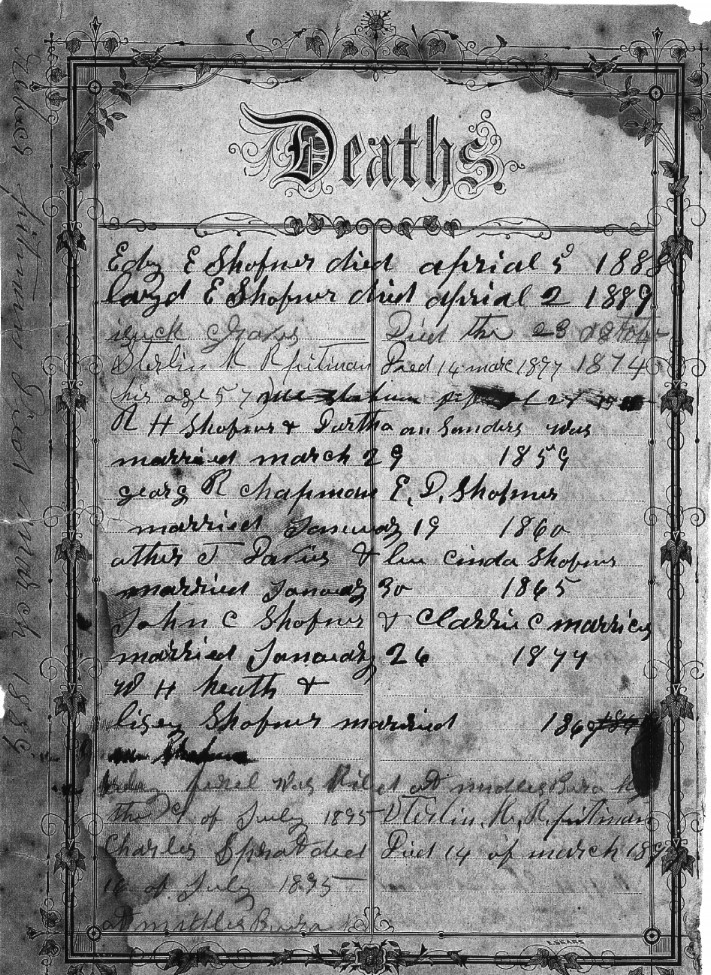 Deaths.
E Shofner died aprial 5 1888
loyd E Shofner died aprial 2 1889
Died the 23 october
Sterlin K R pitman Died 14 marc 1897 1874
his age 57
R H Shofner & Partha an Sanders was
married march 29 1859
georg R chapman E. D. Shofner
married Januway 19 1860
ather J Davis & lu cinda Shofner
married Januay 30 1865
John C Shofner & Clarric C married
married Januway 26 1877
W H heath &
lisey Shofner married 1869
was Kiled at middlesBura Ky
the of July 1895 Sterlin. K. R. pitman
Charles died Died 14 of march 189
of July 1895
at middlesBura
pitman Died march 1889
R.SEARS